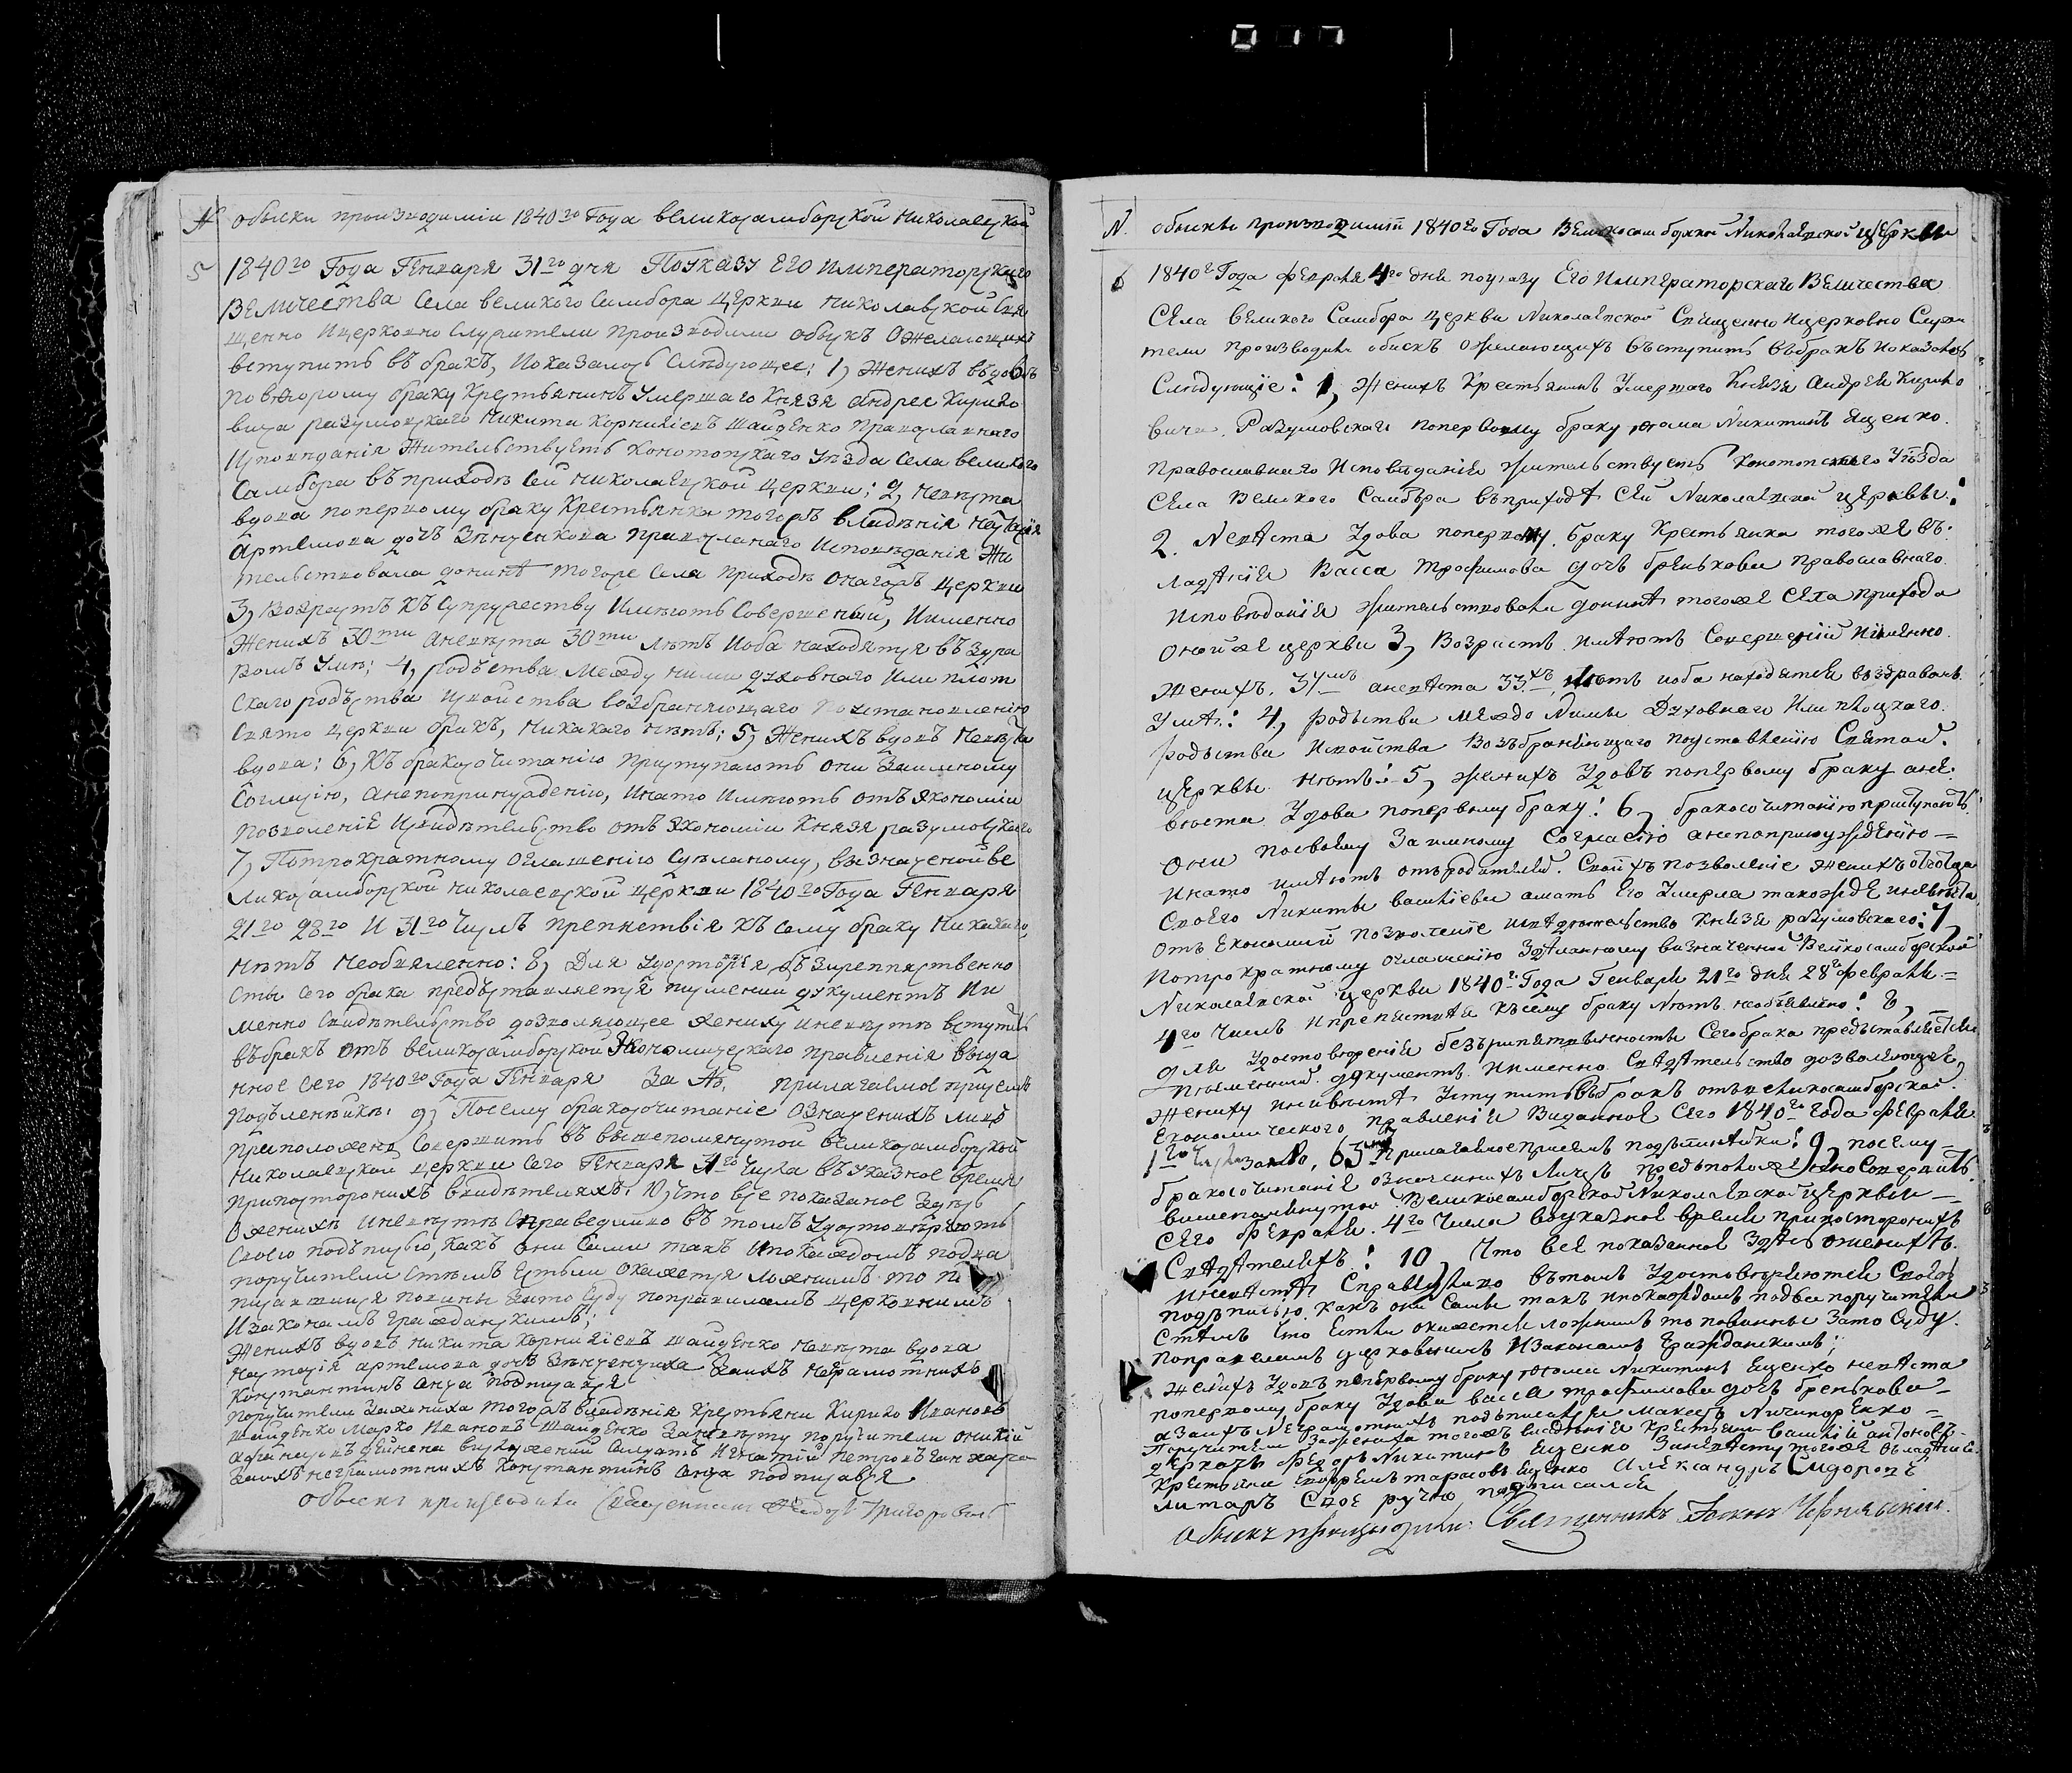 № обыски произходиміи 1840го Года великосамборской Николаевской
5 1840го Года Генваря 31го дня По указу Его Императорскаго
Величества Села великого Самбора церкви николаевской Свя
щенно Ицерковно Служители Произходили обыскъ О желающихъ
вступить въ бракъ, Показалось Слѣдующее: 1, Женихъ вдовъ
по второму браку Крестьянинъ Умершаго Князя Андрея Кирило
вича разумовскаго Никита Корниліевъ шайденко Православнаго
Исповѣданія Жительствуетъ Конотопскаго Уѣзда Села великого
Самбора въ приходѣ Сей николаевской церкви; 2, Невѣста
вдова по первому браку Крестьянка тогожъ владѣнія Настасія
Артемова дочъ Православнаго Исповѣданія Жи
тельствовала донинѣ тогоже Села Приходѣ Оногожъ церкви
3, Возрастъ къ Супружеству Имѣютъ Совершеный, Именно
Женихъ 30ти Аневѣста 30ти лѣтъ Иоба находятся въ Здра
вомъ Умѣ; 4, родъства Между ними духовнаго Или плот
скаго родъства Исвойства возбраняющаго По установленію
Свято церкви бракъ, Никакаго нѣтъ; 5, Женихъ вдовъ Невѣста
вдова: 6, Къ бракосочитанію Приступаютъ они Взаимному
Согласію, Анепопринужденію, Инато Имѣютъ отъ Якономіи
Позволеніе Исвидѣтельство отъ Якономіи Князя разумовскаго
7, По трократному Оглашенію Сдѣланому, въ Означеной ве
ликосамборской николаевской церкви 1840го Года Генваря
21го 28го И 31го Чиселъ препятствія къ сему браку Никакаго
нѣтъ Необъявленно: 8, Для Удосторѣнія безпрепятственно
сты сего брака предъставляется писменни документъ Им
менно Свидѣтельство дозволяющее жениху Иневѣстѣ вступить
въ бракъ отъ великосамборской Якономическаго правленія выда
нное Сего 1840го Года Генваря За №, прилагаемое присемъ
подъленикъ: 9, По сему бракосочитаніе Означенихъ лицъ
приположено Совершить въ вышепомянутой великосамборской
николаевской церкви сего Генваря 31го Числа въ Указное время
припостороннихъ свидѣтеляхъ. 10, Что все показаное Здѣсь
О женихѣ Иневѣстѣ Справедливо въ томъ Удостовѣряютъ
Своею подъписью, Какъ они Сами такъ Ипокаждомъ подва
поручители Стѣмъ Естьли Окажется ложнимъ то
писавшиися повины Зато Суду поправиламъ церковнимъ
Изаконамъ Гражданскимъ;
Женихъ вдовъ никита Корниліевъ шайденко невѣста вдова
Настасія артемова дочь Заихъ неграмотнихъ
Константинъ подписался
Поручители Зажениха тогожъ владѣнія Крестьяни Кирило Ивановъ
шайденко Марко Ивановъ шайденко Заневѣсту поручители
Солдатъ Игнатій Петровъ
Заихъ неграмотнихъ Константинъ подписался
Обыскъ производилъ Священникъ Григоровичъ
№ обыскы произходимій 1840го Года Великосамборской Николаевской церквы
6 1840го Года февраля 4го дня поуказу Его Императорскаго Величества
Села великого Самбора церкви Николаевской Священно Ицерковно Служи
тели производили обискъ ожелающихъ въступить въбракъ Показалось
Слѣдующіе: 1, Женихъ Крестьянинъ Умершаго Князя Андрея Кирило
вича Разумовскаго поперьвому браку Фома Никитинъ Яценко
православнаго Исповѣданія жительствуетъ Конотопскаго Уѣзда
Села Великого Самбора въприходѣ Сей Николаевской церквы:
2. Невѣста Удова поперьвому браку Крестьянка тогоже въ-
ладѣнія Васса Трофимова дочъ бренькова православнаго
Исповѣданія жительствовала донинѣ тогоже Села прихода
Онойже церкви 3, Возрастъ Имѣютъ Совершеній Именно
Женихъ 34мъ аневѣста 33хъ лѣтъ иоба находятся въздравомъ
Умѣ: 4, родъства междо Нимы Духовнаго Или плоцкаго
родъства Исвойства Возъбраняющаго поуставленію Святой
церквы нѣтъ: 5, женихъ Удовъ поперьвому браку ане
вѣста Удова поперьвому браку: 6, бракосочитанію приступаютъ
Они посвоему Заимному Согласію анепопринужденію
Инато имѣютъ отъродителей Своихъ позволеніе женихъ отъотца
Своего Никиты василіева амать Его Умерла такожде иневѣста
отъ Економіи позволеніе исвидѣтельство Князя разумовскаго: 7,
Потрократному оглашенію Здѣланному въозначенной Великосамборской
Николаевской церкви 1840го Года Генваря 21го дня 28го февраля
4го Чиселъ Ипрепятствія къ сему браку Нѣтъ необъявлено: 8,
для Удостовѣренія безъпрепятственносты Сегобрака предъставляется
писменный документъ Именно Свидѣтельство дозволяющее
жениху иневѣстѣ Уступить въбракъ отъвеликосамборской
Економического правленія Виданное Сего 1840го года февраля
1го За №, 65мъ прилагаемое присемъ подълинѣйки: 9, посему
бракосочитаніе означенихъ Лицъ предъположено Совершить
вишепомянутой Великосамборской Николаевской церквы
Сего февраля 4го Числа воуказное время припостороннихъ
Свидѣтеляхъ: 10, Что все показанное Здѣсь оженихѣ
иневѣстѣ Справедливо въ томъ Удостовѣряютъ Своею
подъписью какъ они Самы такъ ипокаждомъ подва поручителя
Стѣмъ Что Естли окажется ложнимъ то повинны Зато Суду
Поправеламъ церковнимъ ИЗаконамъ Гражданскимъ;
женихъ Удовъ поперьвому браку Фома Никитинъ Яценко невѣста
поперьвому браку Удова васса трофимова дочъ бренькова
аЗаихъ Неграмотнихъ подъписался Максимъ Ничипоренко
Поручители Зажениха тогожъ владѣнія Крестьяни василій антоновъ
деркачъ федоръ Никитинъ Яценко Заневѣсту тогоже въладѣнія
Крестьяни Ефремъ тарасовъ Яценко Александръ Сидоровъ
литаръ Свое ручно подписался
Обыскъ производилъ Священникъ Іоаннъ Чернявскій